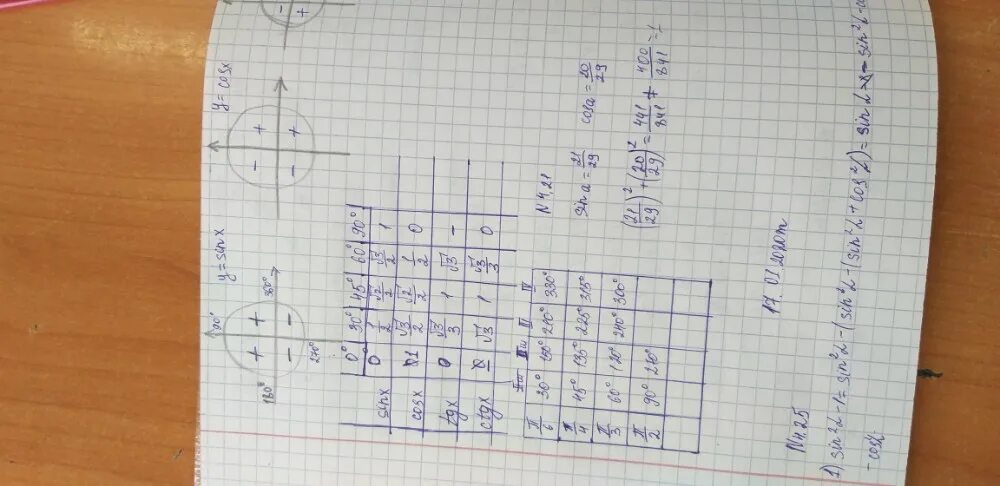 y = sinx
y = cosx
90°
180° + + 360°
270° − −
− +
− +
−
+
0° 30° 45° 60° 90°
sinx 0 1/2 √2/2 √3/2 1
cosx 1 √3/2 √2/2 1/2 0
tgx 0 √3/3 1 √3 −
ctgx √3 1 √3/3 0
II III IV
π/6 30° 150° 210° 330°
π/4 45° 135° 225° 315°
π/3 60° 120° 240° 300°
π/2 90° 270°
N4,21
sin a = 21/29 cos a = 20/29
(21/29)² + (20/29)² = 441/841 + 400/841 = 1
17.01 2020m
N4.25
1) sin²α − 1 = sin²α − (sin²α + cos²α) = sin²α − sin²α − cos
− cos²α